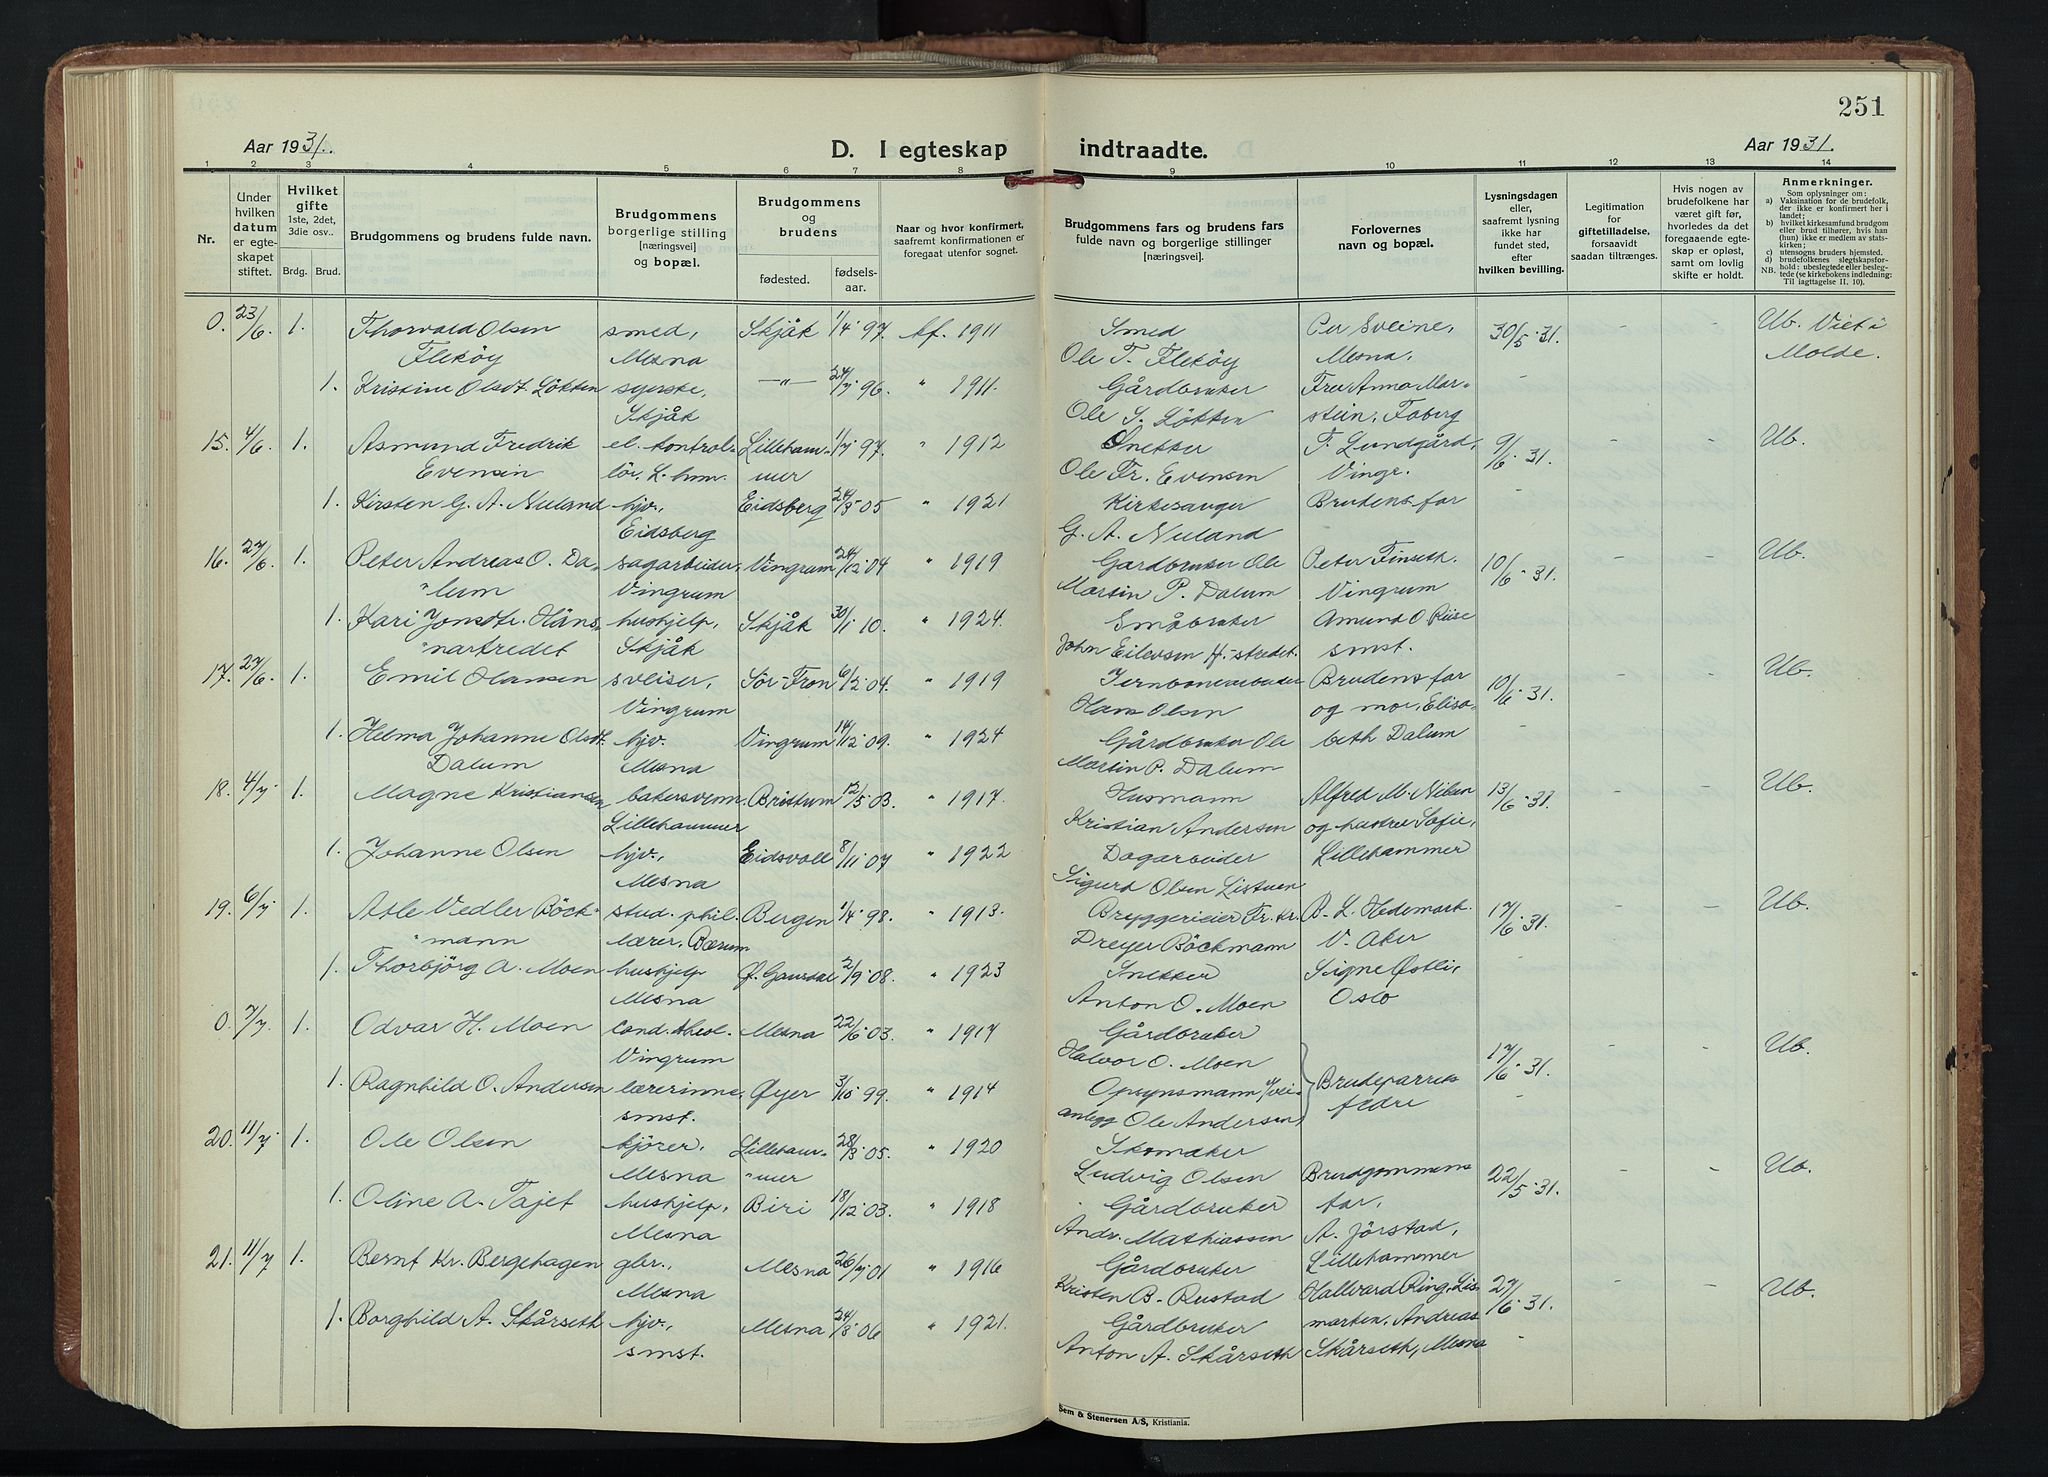 251
Aar 1931.
D. I egteskap indtraadte.
Aar 1931.
1 2 3 4 5 6 7 8 9 10 11 12 13 14
Nr.
Under hvilken datum er egteskapet stiftet.
Hvilket gifte 1ste, 2det, 3die osv..
Brdg. Brud.
Brudgommens og brudens fulde navn.
Brudgommens borgerlige stilling [næringsvei] og bopæl.
Brudgommens og brudens
fødested. fødselsaar.
Naar og hvor konfirmert, saafremt konfirmationen er foregaat utenfor sognet.
Brudgommens fars og brudens fars fulde navn og borgerlige stillinger [næringsvei].
Forlovernes navn og bopæl.
Lysningsdagen eller, saafremt lysning ikke har fundet sted, efter hvilken bevilling.
Legitimation for giftetilladelse, forsaavidt saadan tiltrænges.
Hvis nogen av brudefolkene har været gift før, hvorledes da det foregaaende egteskap er opløst, samt om lovlig skifte er holdt.
Anmerkninger.
Som oplysninger om:
a) Vaksination for de brudefolk, der ikke er konfirmert her i landet;
b) hvilket kirkesamfund brudgom eller brud tilhører, hvis han (hun) ikke er medlem av statskirken;
c) utensogns bruders hjemsted.
d) brudefolkenes slegtskapsforhold: ubeslegtede eller beslegtede (se kirkebokens indledning: Til iagttagelse II. 10).
NB.
0. 23/6 1. Thorvald Olsen Flekøy smed, Mesna Skjåk 1/4 97. kf. 1911 Smed Ole T. Flekøy Per Sveine, Mesna. 30/5 31. - - Ub. Viet i Molde.
1. Kristine Olsdt. Løkken syerske, Skjåk —"— 24/7 96. " 1911. Gårdbruker Ole S. Løkken Fru Anna Marstein, Fåberg -
15. 4/6 1. Asmund Fredrik Evensen el. kontrollør, L.hmr. Lillehammer 1/7 97. " 1912 Snekker Ole Fr. Evensen F. Lundgård, Vingr. 9/6 31. - - Ub.
1. Kirsten G. A. Nuland hjv., Eidsberg Eidsberg 24/3 05 " 1921 Kirkesanger G. A. Nuland Brudens far -
16. 27/6 1. Peter Andreas O. Dalum sagarbeider, Vingrum Vingrum 24/12 04 " 1919 Gårdbruker Ole Martin P. Dalum Peter Finseth. Vingrum 10/6 31. - - Ub.
1. Kari Jonsdtr. Hånsnarstredet hushjelp, Skjåk Skjåk 30/1 10. " 1924. Småbruker John Eilevsen H.-stredet. Amund O Riise smst. -
17. 27/6 1. Emil Hansen sveiser, Vingrum Sør-Fron 6/2 04. " 1919 Jernbanearbeider Hans Olsen Brudens far og mor, Elisabeth Dalum 10/6 31. - - Ub.
1. Helma Johanne Olsdt. Dalum hjv. Mesna Vingrum 14/12 09. " 1924 Gårdbruker Ole Martin P. Dalum -
18. 4/7 1. Magne Kristiansen bakersvenn, Lillehammer Bristum 12/5 03. " 1917 Husmann Kristian Andersen Alfred M. Nilsen og hustru Sofie, Lillehammer 13/6 31. - - Ub.
1. Johanne Olsen hjv., Mesna Eidsvoll 8/11 07 " 1922 Dagarbeider Sigurd Olsen Listuen -
19. 6/7 1. Atle Vedler Böckmann stud. phil. lærer. Bærum Bergen 1/4 98. " 1913. Bryggerieier Fr. Kr. Dreyer Böckmann B. L. Hedemark. V. Aker 17/6 31. - - Ub.
1. Thorbjörg A. Moen hushjelp Mesna Ø. Gausdal 2/9 08. " 1923 Snekker Anton O. Moen Signe Østli, Oslo -
0. 7/7 1. Odvar H. Moen Cand. theol. Vingrum Mesna 22/6 03. " 1917 Gårdbruker Halvor O. Moen Brudeparrets fedre 17/6 31. - - Ub.
1. Ragnhild O. Andersen lærerinne, smst. Øyer 3/10 99. " 1914 Opsynsmann v/veianlegg Ole Andersen
20. 11/7 1. Ole Olsen kjører, Mesna Lillehammer 28/3 05. " 1920 Skomaker Ludvig Olsen Brudgommens far, 22/5 31. - - Ub.
1. Oline A. Tajet hushjelp, Mesna Biri 18/12 03. " 1918 Gårdbruker Andr. Mathiassen A. Jørstad, Lillehammer
21. 11/7 1. Bernt Kr. Bergehagen gbr., Mesna Mesna 26/7 01 " 1916 Gårdbruker Kristen B. Rustad Hallvard Ring, Lismarken, 27/6 31. - - Ub.
1. Borghild A. Skårseth hjv., smst. Mesna 24/8 06 " 1921. Gårdbruker Anton A. Skårseth Andreas Skårseth, Mesna -
Sem & Stenersen A/S, Kristiania.